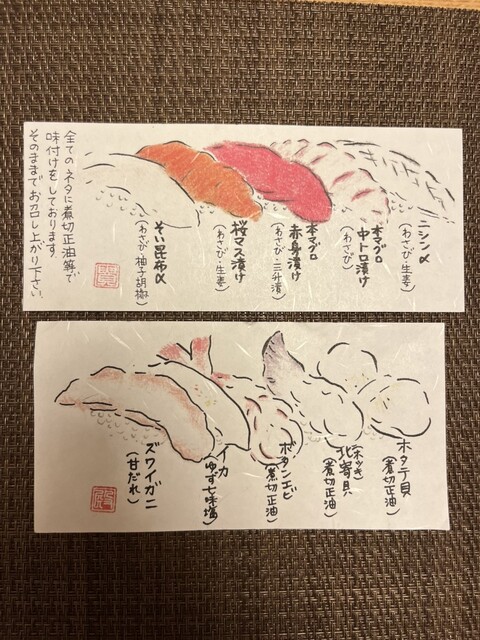 ニシン〆
(わさび・生姜)
本マグロ
中トロ漬け
(わさび)
本マグロ
赤身漬け
(わさび・三升漬)
桜マス漬け
(わさび・生姜)
そい昆布〆
(わさび・柚子胡椒)
全てのネタに煮切正油等で
味付けをしております。
そのままでお召し上がり下さい。
ホタテ貝
(煮切正油)
(ホッキ)
北寄貝
(煮切正油)
ボタンエビ
(煮切正油)
イカ
(ゆず七味塩)
ズワイガニ
(甘だれ)